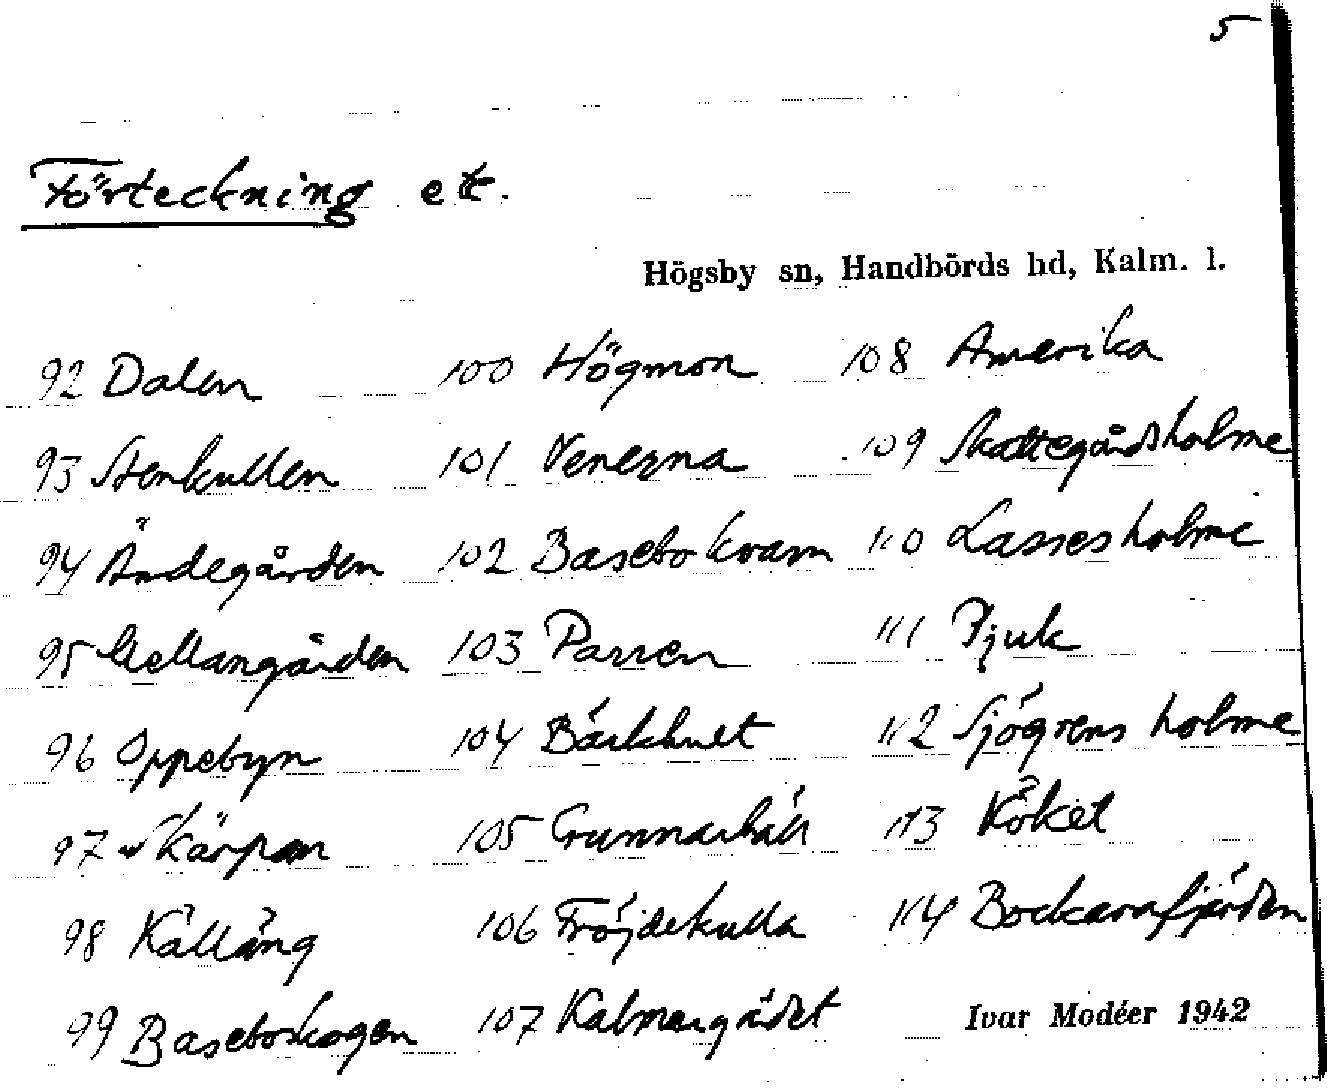 5
Förteckning etc.
Högsby sn, Handbörds hd, Kalm. l.
92 Dalen 100 Högmon 108 Amerika
93 Stenkullen 101 Venerna 109 Skattegårdsholme
94 Ändegården 102 Basebo kvarn 110 Lassesholme
95 Mellangården 103 Parren 111 Pjuk
96 Oppebyn 104 Bärkhult 112 Sjögrens holme
97 Skärpan 105 Grunnarhäll 113 Köket
98 Källäng 106 Fröjdekulla 114 Bockarafjärden
99 Baseboskogen 107 Kalmargärdet
Ivar Modéer 1942